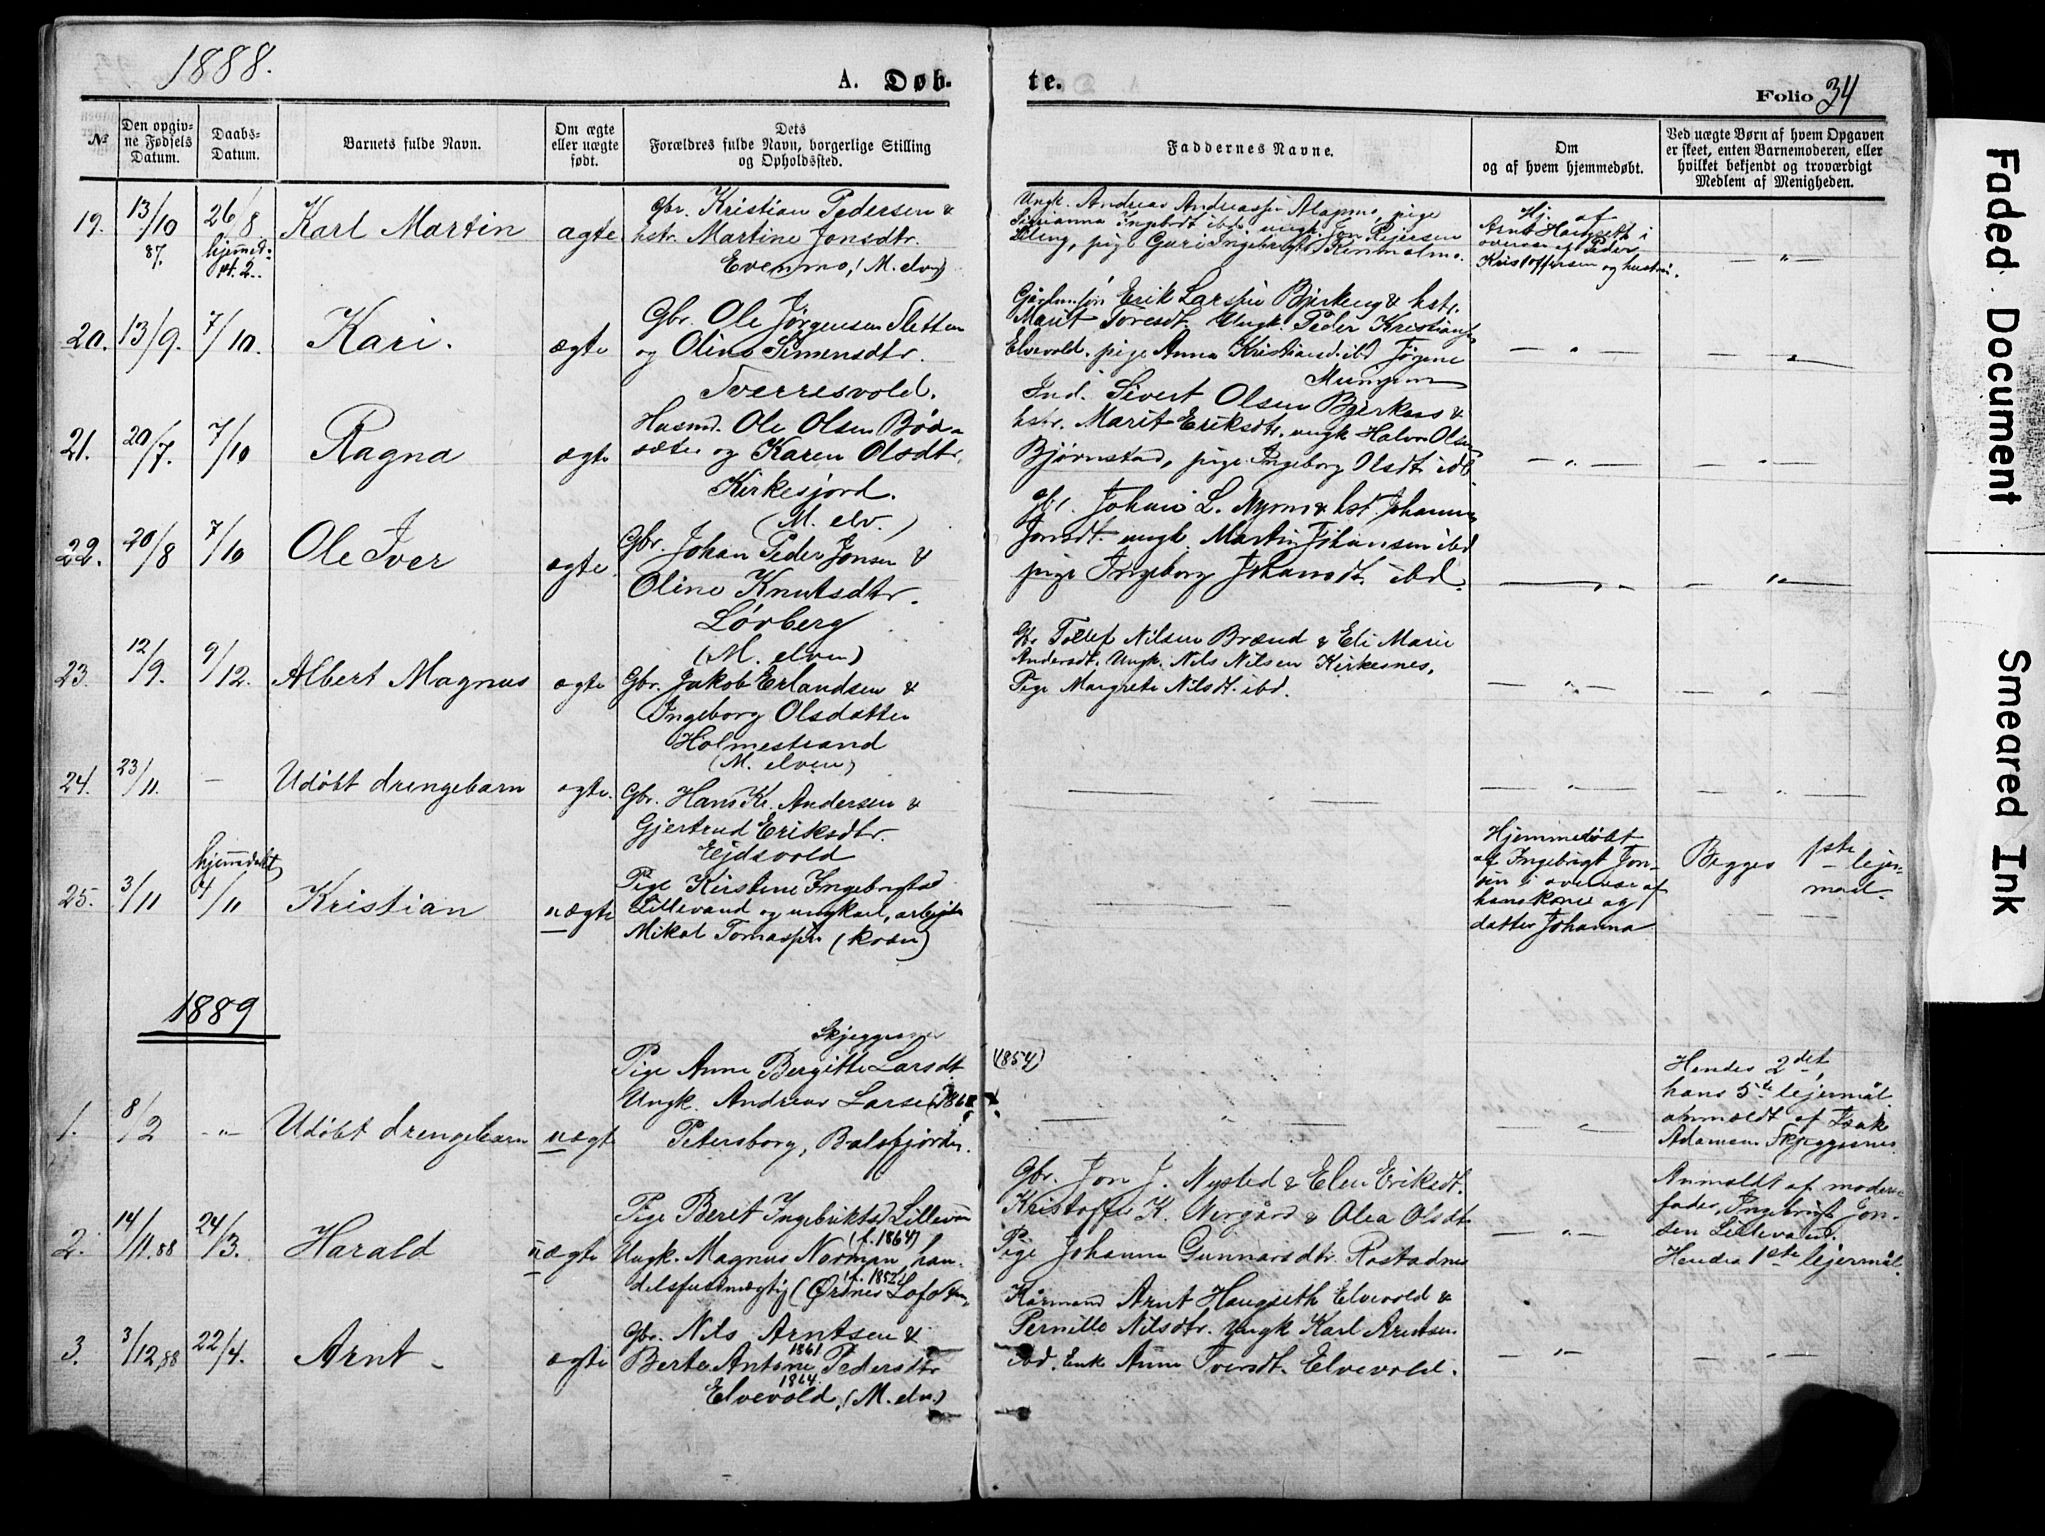 1888.
A. Døb-
te.
Folio 34
№
Den opgiv-
ne Fødsels
Datum.
Daabs-
Datum.
Barnets fulde Navn.
Om ægte
eller uægte
født.
Dets
Forældres fulde Navn, borgerlige Stilling
og Opholdssted.
Faddernes Navne.
Om
og af hvem hjemmedøbt.
Ved uægte Børn af hvem Opgaven
er skeet, enten Barnemoderen, eller
hvilket bekjendt og troværdigt
Medlem af Menigheden.
19.
13/10
87.
26/8
hjemmed.
Karl Martin
ægte
Gbr. Kristian Pedersen &
hstr. Martine Jonsdtr.
Evenmo, (M. elv)
Ungk. Andreas pige
ibd. ungk. Jon
pige Guri
Hj. af
Arnt Haugseth i
overvær af Peder
Kristoffersen og hustru.
20.
13/9.
7/10.
Kari.
ægte
Gbr. Ole Jørgensen Sletten
og Oline Simensdtr.
Tverresvold.
Erik Larsen Bjerkeng & hstr.
Marit Toresdt. Ungk Peder
Elvevold. pige Anna ibd
21.
20/7.
7/10
Ragna
ægte
Husmd. Ole Olsen Bød-
sæter og Karen Olsdtr.
Kirkesjord.
(M. elv.)
Ind. Sivert Olsen
hstr. Marit Eriksdtr. ungk Halvor Olsen
Bjørnstad, pige Ingeborg Olsdt ibd
22.
20/8
7/10
Ole Iver
ægte.
Gbr. Johan Peder Jonsen &
Oline Knutsdtr.
Lørberg
(M. elven)
Gbr. L. Nymo & hst. Johanna
Jonsdt ungk Martin Johansen ibd
pige Ingeborg Johansdt. ibd.
23.
12/9.
9/12.
Albert Magnus
ægte
Gbr. Jakob Erlandsen &
Ingeborg Olsdatter
Holmestrand
(M. elven)
Gbr Tollef Nilsen Brænd & Eli Marie
Andersdt. Ungk. Nils Nilsen Kirkesnes,
Pige Margrete Nilsdt. ibd.
24.
23/11.
Udøbt drengebarn
ægte.
Gbr. Hans Kr. Andersen &
Gjertrud Eriksdtr.
Eidsvold
25.
3/11
hjemdøbt
4/11
Kristian
uægte
Pige Kirstine Ingebrigtsd
Lillevand og ungkarl, arbejder
Mikal Tomassen
Hjemmedøbt
af Ingebrigt Jon-
sen i overvær af
hans kone og
datter Johanna
Begges 1ste lejer-
maal.
1889
1.
8/2
Udøbt drengebarn
uægt
Skjeggesnes
Pige Anne Bergitte Larsdt
(1854)
Ungk. Andreas Larsen
Petersborg, Balsfjorden.
Hendes 2det,
hans 5te lejermål.
anmeldt af Isak
Adamsen Skjeggesnes
2.
14/11.88
24/3.
Harald
uægte
Pige Beret Ingebriktsd Lillevand
(f. 1864)
Ungk. Magnus Norman, han-
(f. 1852)
delsfuldmægtig (Ørsnes Lofoten)
Gbr. Jon J. Nysted & Elen Eriksdt.
Kristoffer K. Nergård & Olea Olsdt
Pige Johanna Gunnarsdtr. Rostadnes
Anmeldt af moders-
fader, Ingebrigt Jon-
sen Lillevand.
Hendes 1ste lejermål.
3.
3/12.88
22/4.
Arnt
ægte
Gbr. Nils Arntsen &
1861
Berte Antone Pedersdtr
1864.
Elvevold, (M. elv)
Kårmand Arnt Haugseth Elvevold &
Pernille Nilsdtr. Ungk Karl Arntsen
ibd. Enke Anne Elvevold.
Faded Document
Smeared Ink